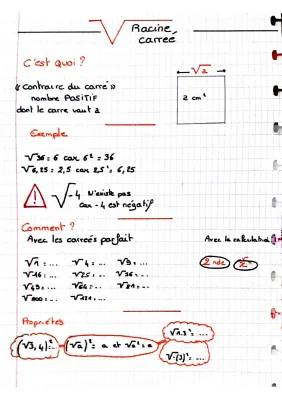 √ Racine
carrée
C'est quoi ?
"contraire du carré"
nombre POSITIF
dont le carré vaut a
√2
2 cm²
Exemple
√36 = 6 car 6² = 36
√6,25 = 2,5 car 2,5² = 6,25
√-4 N'existe pas
car -4 est négatif
Comment ?
Avec les carrées parfait
Avec la calculatrice
√1 = ... √4 = ... √9 = ...
√16 = ... √25 = ... √36 = ...
√49 = ... √64 = ... √81 = ...
√100 = ... √121 = ...
2nde
Propriétés
(√3,4)² = ... (√a)² = a et √a² = a
√(-3)² = ...